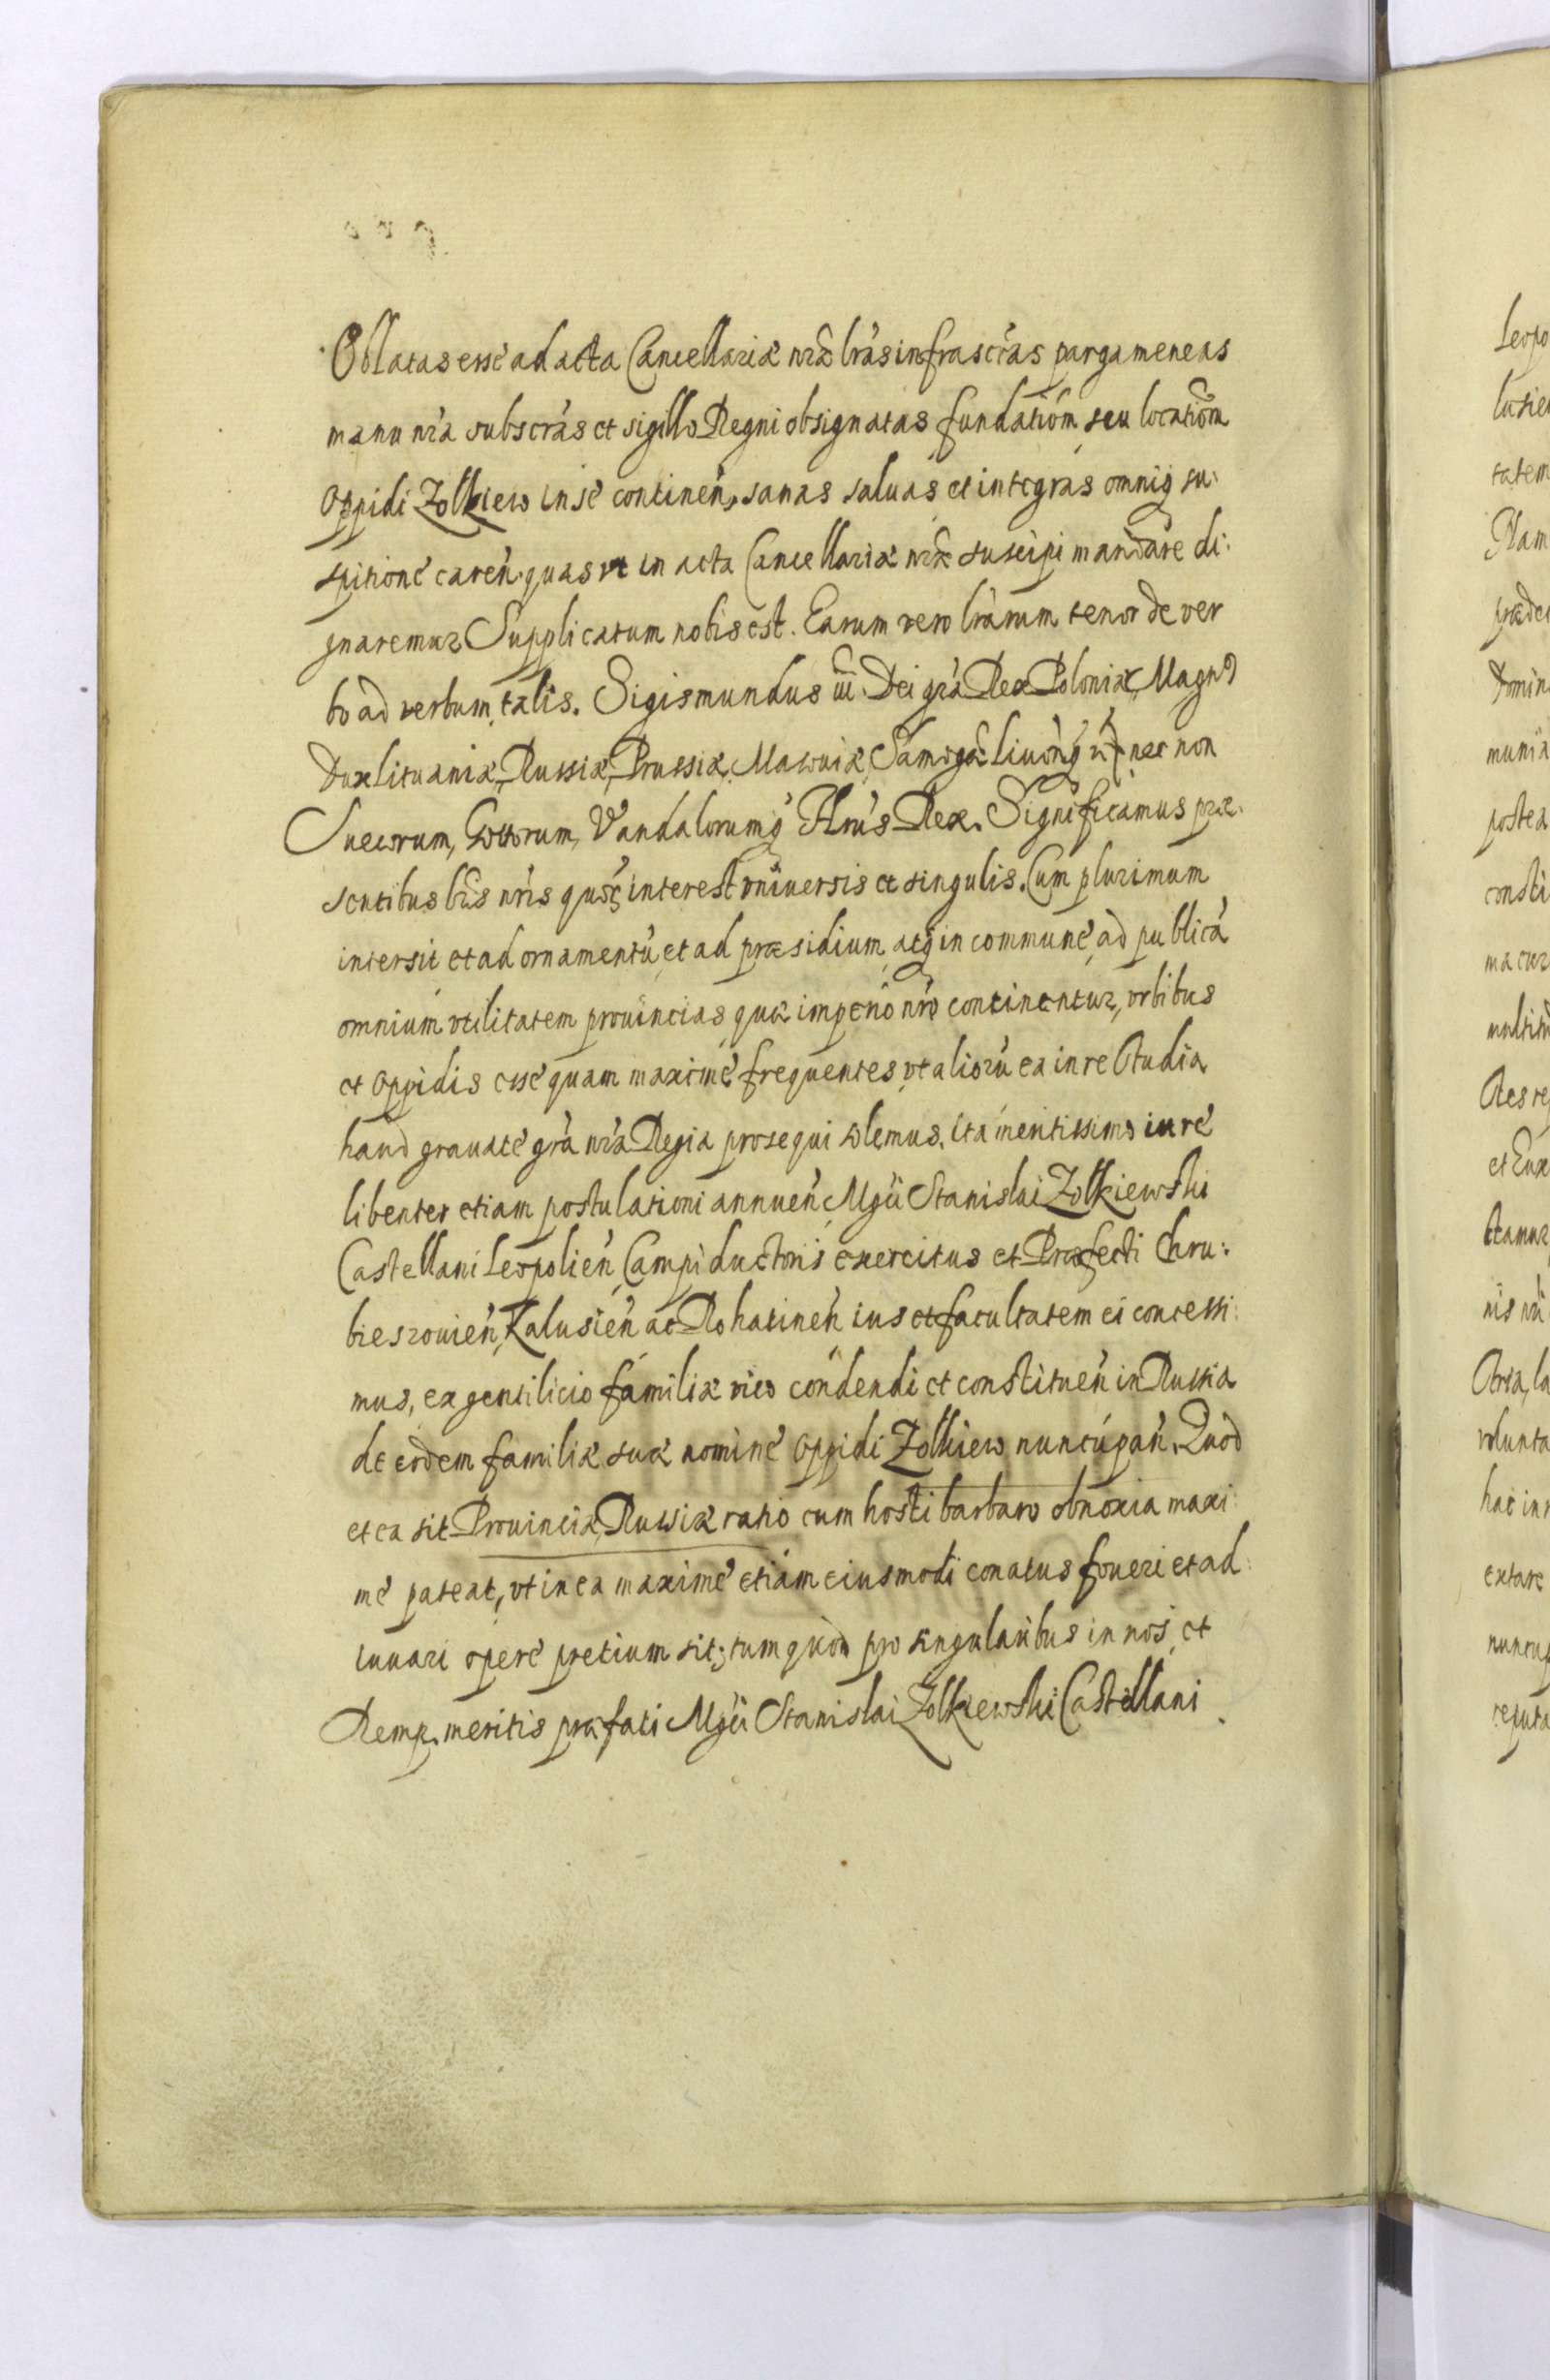 Oblatas esse ad acta Cancellariæ nrǽ lrás infrascrás pargameneas
manu nrá subscrás et sigillo Regni obsignatas fundatióm seu locatióm
Oppidi Zolkiew in se continen̉, sanas saluas et integras omniq̣ su:
spitione caren̉ quas vt in acta Cancellariæ nrǽ suscipi mandare di:
gnaremur Supplicatum nobis est. Earum vero lrárum tenor de ver
bo ad verbum talis. Sigismundus iii Dei grá Rex Poloniæ, Magnꝰ
Dux Lituaniæ, Russiæ, Prussiæ, Masouiæ, Samogæ Liuonq̣ nec non
Suecorum, Gottorum, Vandalorumq̣ Hrús Rex. Significamus præ:
sentibus lrís nrís quoȝ interest vniuersis et singulis. Cum plurimum
intersit et ad ornamentū et ad præsidium atq̣ in commune ad publicā
omnium vtilitatem prouincias quæ imperio nró continentur, vrbibus
et Oppidis esse quam maxime frequentes, vt aliorū ea in re Studia
haud grauate grá nrá Regia prosequi solemus. ita meritissimo iure
libenter etiam postulationi annuen̉ Mgci Stanislai Zolkiewski
Castellani Leopolien̉ Campiductoris exercitus et Præfecti Chru:
bieszouien̉, Kalusien̉ ac Rohatinen̉ ius et facultatem ei concessi:
mus, ex gentilicio familiæ vico condendi et constituen̉ in Russia
de eodem familiæ suæ nomine Oppidi Zolkiew nuncupan̉. Quod
et ea sit Prouinciæ Russiæ ratio cum hosti barbaro obnoxia maxi:
me pateat, vt in ea maxime etiam eiusmodi conatus foueri et ad:
iuuari opere pretium sit; tum quòd pro singularibus in nos et
Remp. meritis præfati Mgci Stanislai Zolkiewski Castellani